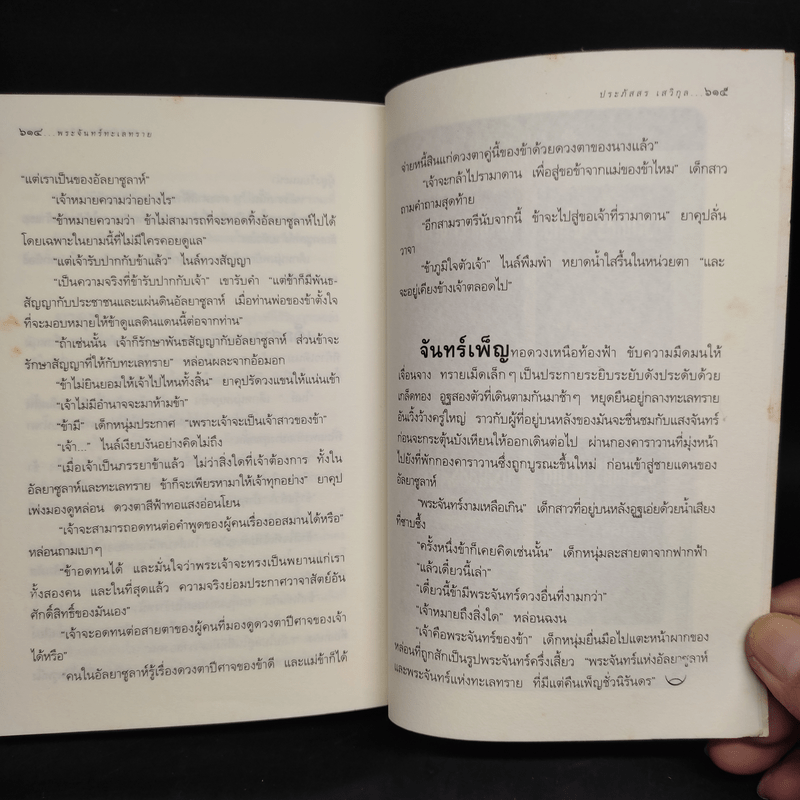 ๖๑๔...พระจันทร์ทะเลทราย
“แต่เราเป็นของอัลยาซูลาห์”
“เจ้าหมายความว่าอย่างไร”
“ข้าหมายความว่า ข้าไม่สามารถที่จะทอดทิ้งอัลยาซูลาห์ไปได้
โดยเฉพาะในยามนี้ที่ไม่มีใครคอยดูแล”
“แต่เจ้ารับปากกับข้าแล้ว” ไนล์ทวงสัญญา
“เป็นความจริงที่ข้ารับปากกับเจ้า” เขารับคำ “แต่ข้าก็มีพันธ-
สัญญากับประชาชนและแผ่นดินอัลยาซูลาห์ เมื่อท่านพ่อของข้าตั้งใจ
ที่จะมอบหมายให้ข้าดูแลดินแดนนี้ต่อจากท่าน”
“ถ้าเช่นนั้น เจ้าก็รักษาพันธสัญญากับอัลยาซูลาห์ ส่วนข้าจะ
รักษาสัญญาที่ให้กับทะเลทราย” หล่อนผละจากอ้อมอก
“ข้าไม่ยินยอมให้เจ้าไปไหนทั้งสิ้น” ยาคุปรัดวงแขนให้แน่นเข้า
“เจ้าไม่มีอำนาจจะมาห้ามข้า”
“ข้ามี” เด็กหนุ่มประกาศ “เพราะเจ้าจะเป็นเจ้าสาวของข้า”
“เจ้า...” ไนล์เงียบงันอย่างคิดไม่ถึง
“เมื่อเจ้าเป็นภรรยาข้าแล้ว ไม่ว่าสิ่งใดที่เจ้าต้องการ ทั้งใน
อัลยาซูลาห์และทะเลทราย ข้าก็จะเพียรหามาให้เจ้าทุกอย่าง” ยาคุป
เพ่งมองดูหล่อน ดวงตาสีฟ้าทอแสงอ่อนโยน
“เจ้าจะสามารถอดทนต่อคำพูดของผู้คนเรื่องออสมานได้หรือ”
หล่อนถามเบาๆ
“ข้าอดทนได้ และมั่นใจว่าพระเจ้าจะทรงเป็นพยานแก่เรา
ทั้งสองคน และในที่สุดแล้ว ความจริงย่อมประกาศวาจาสัตย์อัน
ศักดิ์สิทธิ์ของมันเอง”
“เจ้าจะอดทนต่อสายตาของผู้คนที่มองดูดวงตาปีศาจของเจ้า
ได้หรือ”
“คนในอัลยาซูลาห์รู้เรื่องดวงตาปีศาจของข้าดี และแม่ข้าก็ได้
ประภัสสร เสวิกุล...๖๑๕
จ่ายหนี้สินแก่ดวงตาคู่นี้ของข้าด้วยดวงตาของนางแล้ว”
“เจ้าจะกล้าไปรามาดาน เพื่อสู่ขอข้าจากแม่ของข้าไหม” เด็กสาว
ถามคำถามสุดท้าย
“อีกสามราตรีนับจากนี้ ข้าจะไปสู่ขอเจ้าที่รามาดาน” ยาคุปลั่น
วาจา
“ข้าภูมิใจตัวเจ้า” ไนล์พึมพำ หยาดน้ำใสรื้นในหน่วยตา “และ
จะอยู่เคียงข้างเจ้าตลอดไป”
จันทร์เพ็ญทอดวงเหนือท้องฟ้า ขับความมืดมนให้
เจื่อนจาง ทรายเม็ดเล็กๆ เป็นประกายระยิบระยับดังประดับด้วย
เกล็ดทอง อูฐสองตัวที่เดินตามกันมาช้าๆ หยุดยืนอยู่กลางทะเลทราย
อันเวิ้งว้างครู่ใหญ่ ราวกับผู้ที่อยู่บนหลังของมันจะชื่นชมกับแสงจันทร์
ก่อนจะกระตุ้นบังเหียนให้ออกเดินต่อไป ผ่านกองคาราวานที่มุ่งหน้า
ไปยังที่พักกองคาราวานซึ่งถูกบูรณะขึ้นใหม่ ก่อนเข้าสู่ชายแดนของ
อัลยาซูลาห์
“พระจันทร์งามเหลือเกิน” เด็กสาวที่อยู่บนหลังอูฐเอ่ยด้วยน้ำเสียง
ที่ซาบซึ้ง
“ครั้งหนึ่งข้าก็เคยคิดเช่นนั้น” เด็กหนุ่มละสายตาจากฟากฟ้า
“แล้วเดี๋ยวนี้เล่า”
“เดี๋ยวนี้ข้ามีพระจันทร์ดวงอื่นที่งามกว่า”
“เจ้าหมายถึงสิ่งใด” หล่อนฉงน
“เจ้าคือพระจันทร์ของข้า” เด็กหนุ่มยื่นมือไปแตะหน้าผากของ
หล่อนที่ถูกสักเป็นรูปพระจันทร์ครึ่งเสี้ยว “พระจันทร์แห่งอัลยาซูลาห์
และพระจันทร์แห่งทะเลทราย ที่มีแต่คืนเพ็ญชั่วนิรันดร”